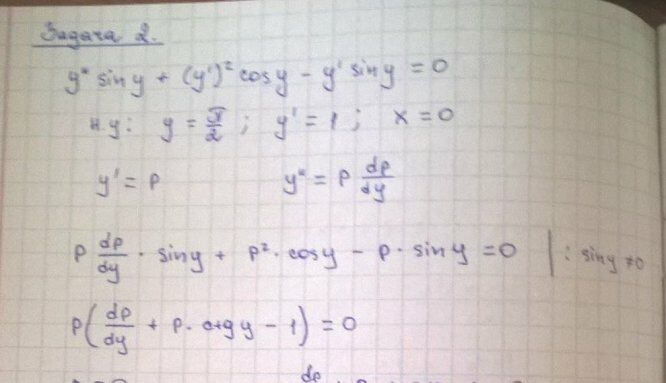 Задача 2.
y" sin y + (y')² cos y - y' sin y = 0
н.у: y = π/2 ; y' = 1 ; x = 0
y' = p y" = p dp/dy
p dp/dy · sin y + p² · cos y - p · sin y = 0 | : sin y ≠ 0
p(dp/dy + p · ctg y - 1) = 0
dp